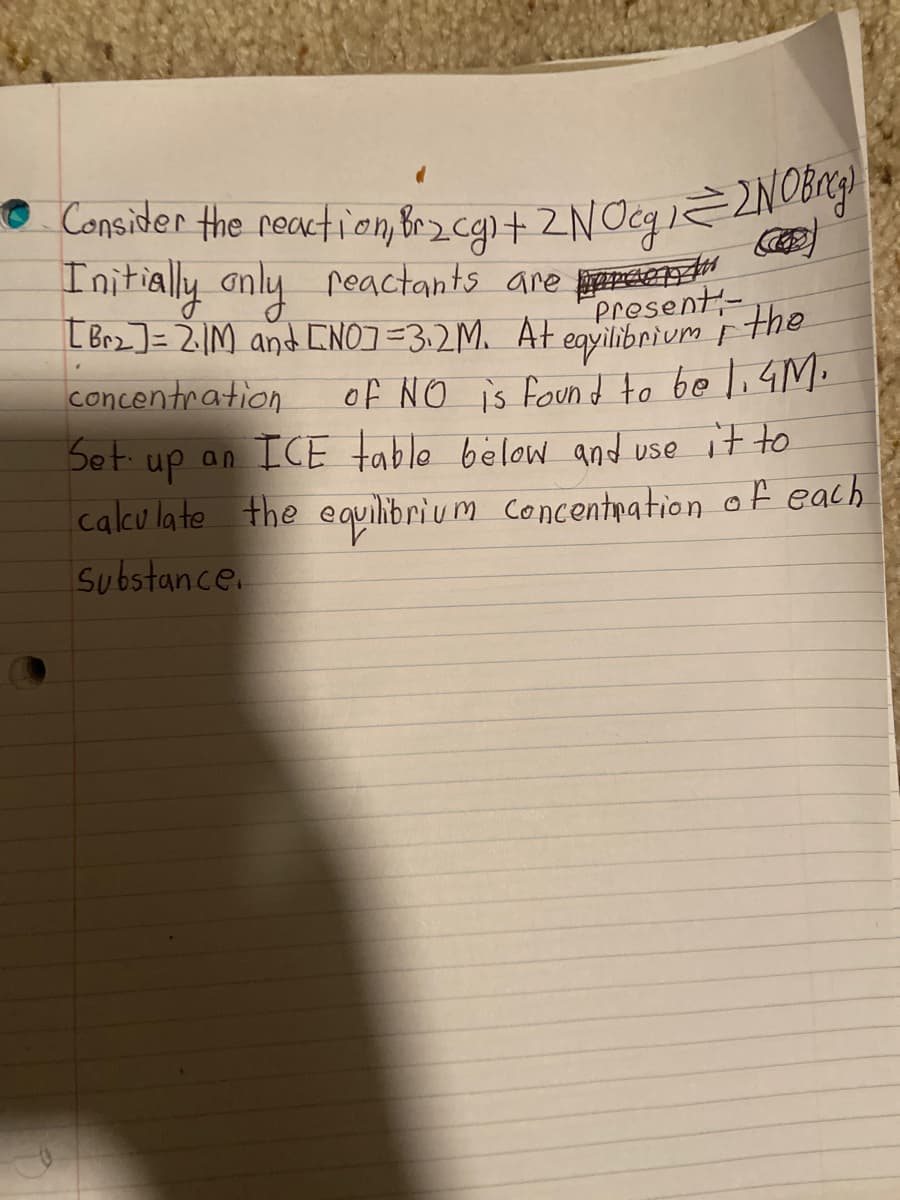 Consider the reaction, Br2(g) + 2NO(g) ⇌ 2NOBr(g)
Initially only reactants are
present:-
[Br2] = 2.1M and [NO] = 3.2M. At equilibrium, the
concentration of NO is found to be 1.4M.
Set up an ICE table below and use it to
calculate the equilibrium concentration of each
substance.